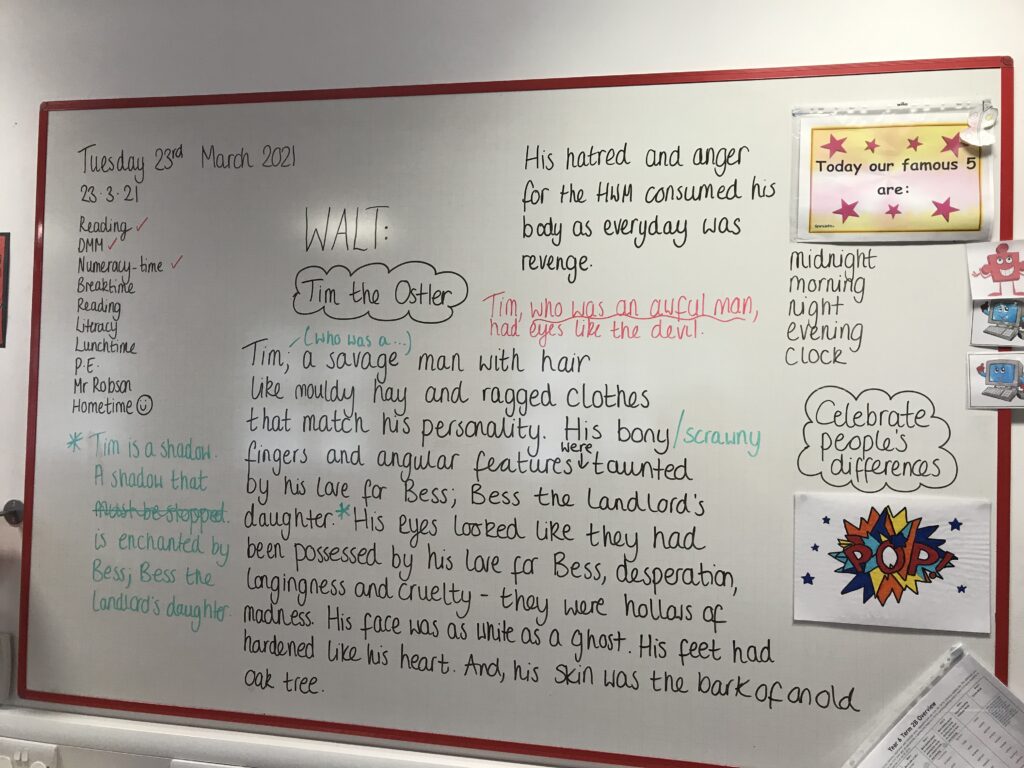 Tuesday 23rd March 2021
23.3.21
Reading ✓
DMM ✓
Numeracy-time ✓
Breaktime
Reading
Literacy
Lunchtime
P.E.
Mr Robson
Hometime
* Tim is a shadow.
A shadow that
must be stopped.
is enchanted by
Bess; Bess the
landlord's daughter.
WALT:
Tim the Ostler
His hatred and anger
for the HWM consumed his
body as everyday was
revenge.
Tim, who was an awful man,
had eyes like the devil.
(who was a...)
Tim, a savage man with hair
like mouldy hay and ragged clothes
that match his personality. His bony/scrawny
were
fingers and angular features taunted
by his love for Bess; Bess the landlord's
daughter.* His eyes looked like they had
been possessed by his love for Bess, desperation,
longingness and cruelty - they were hollows of
madness. His face was as white as a ghost. His feet had
hardened like his heart. And, his skin was the bark of an old
oak tree.
Today our famous 5
are:
midnight
morning
night
evening
clock
Celebrate
people's
differences
POP!
Year 6 Term 2B Overview